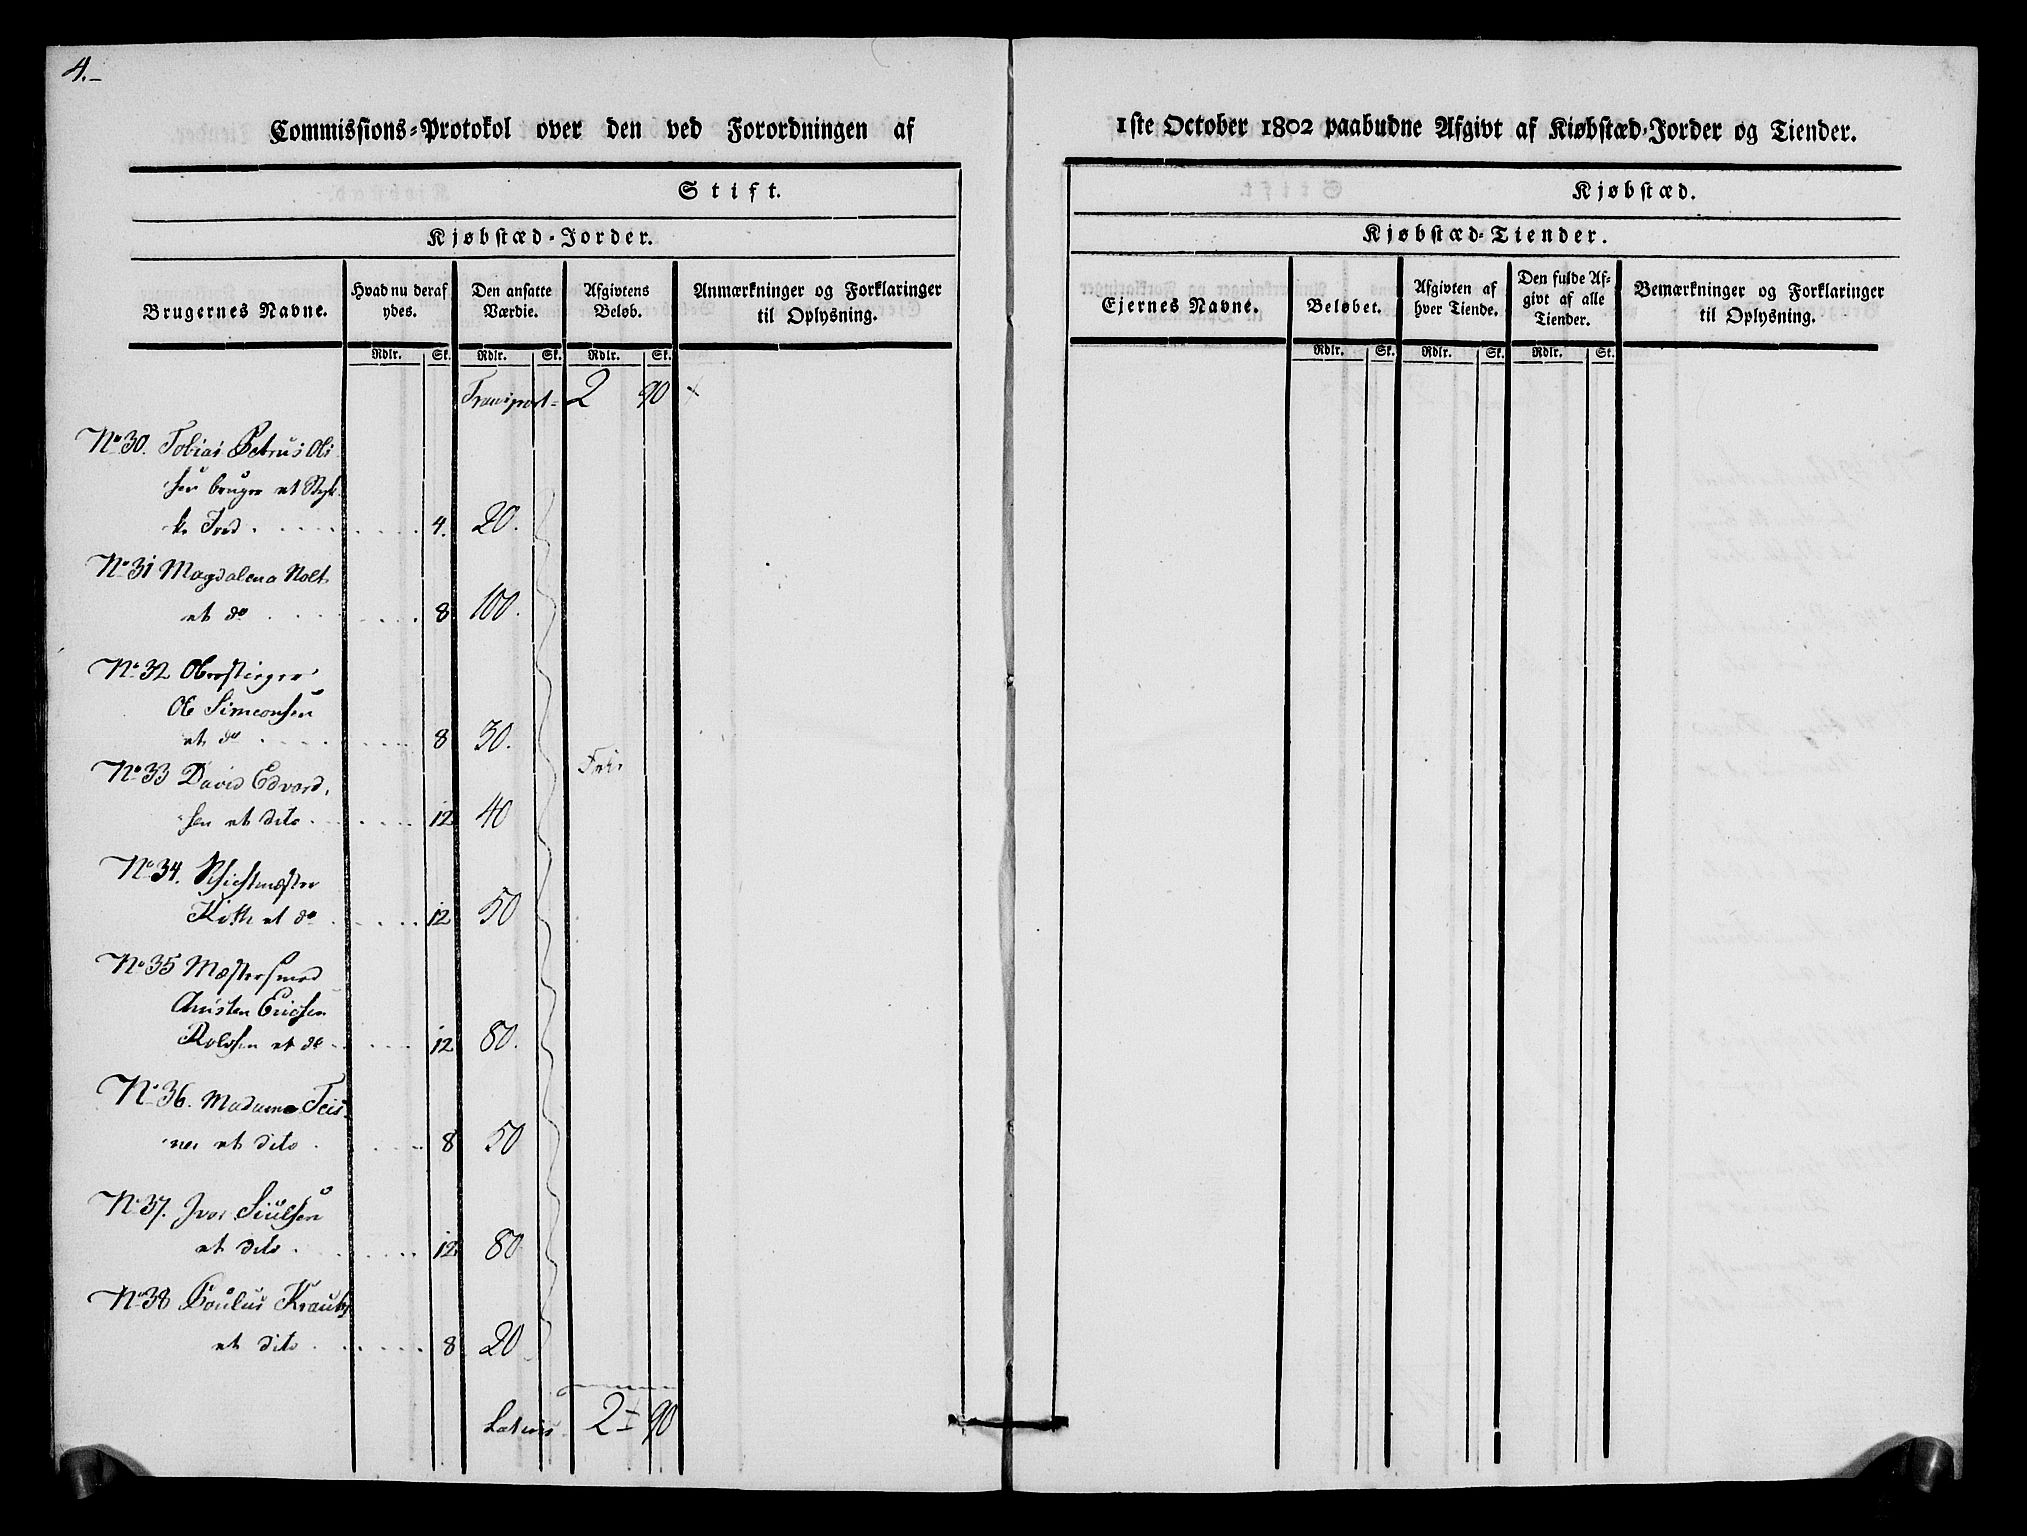 4.-
Commissions-Protokol over den ved Forordningen af
Stift.
Kjøbstæd-Jorder.
Brugernes Navne.
Hvad nu deraf ydes.
Den ansatte Værdie.
Afgivtens Beløb.
Anmærkninger og Forklaringer til Oplysning.
Rdlr. Sk. Rdlr. Sk. Rdlr. Sk.
Transport = 2 90
No 30. Tobias Petrus Ol-
sen bruger et Styk-
ke Jord . . . . 4. 20.
No 31 Magdalena Nolt
et do . . . . 8 100.
No 32 Oberstieger
Ole Simeonsen
et do . . . . 8 30.
No 33 David Edvard- Frie
sen et dito . . . . 12 40
No 34. Schichtmæster
et do . . . . 12 50
No 35 Mæstersmed
Christen Erichsen
et do . . . . 12 80.
No 36. Madame Teis-
ner et dito . . . . 8 50
No 37. Iver Siulsen
et dito . . . . 12 80
No 38 Poulus
et dito . . . . 8 20
Latus 2 = 90
1ste October 1802 paabudne Afgivt af Kiøbstæd-Jorder og Tiender.
Kjøbstæd.
Kjøbstæd-Tiender.
Ejernes Navne.
Beløbet.
Afgivten af hver Tiende.
Den fulde Afgivt af alle Tiender.
Bemærkninger og Forklaringer til Oplysning.
Rdlr. Sk. Rdlr. Sk. Rdlr. Sk.